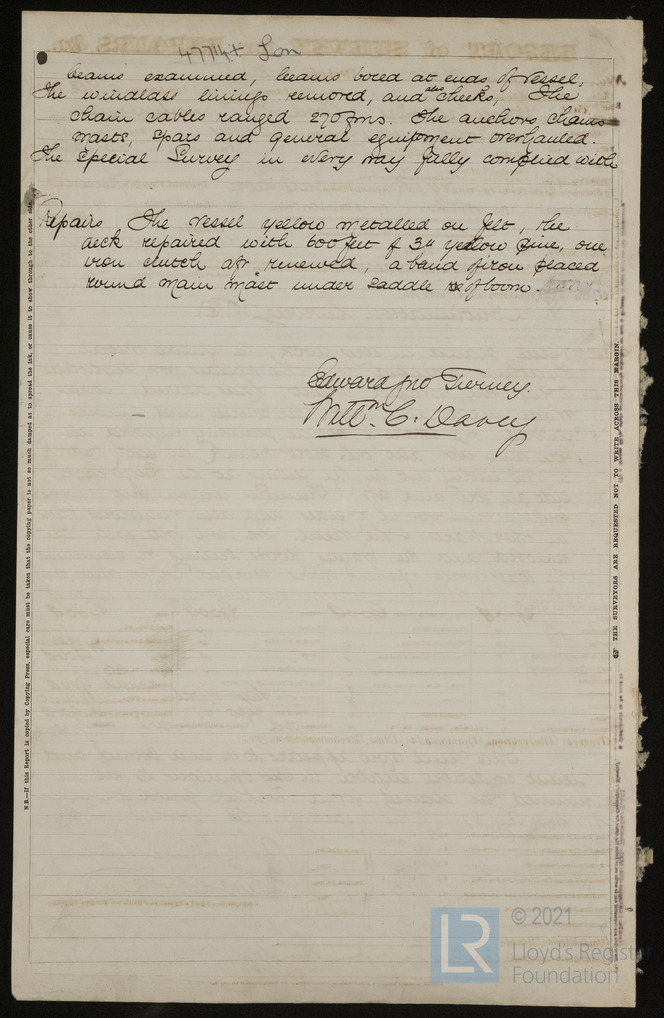 47714 Lon
beams examined, beams bored at ends of vessel,
The windlass linings removed, and also cheeks, The
chain cables ranged 270 fms. The anchors chains
masts, spars and general equipment overhauled.
The Special Survey in every way fully complied with
Repairs The vessel yellow metalled on felt, the
deck repaired with 600 feet of 3" yellow pine, one
iron crutch aft renewed, a band of iron placed
round main mast under saddle of boom.
Edward Jno Tierney.
Wm. C. Davey
N.B.—If this Report is copied by Copying Press, especial care must be taken that the copying paper is not so much damped as to spread the ink, or cause it to show through to the other side.
THE SURVEYORS ARE REQUESTED NOT TO WRITE ACROSS THIS MARGIN.
LR
© 2021
Lloyd's Register
Foundation